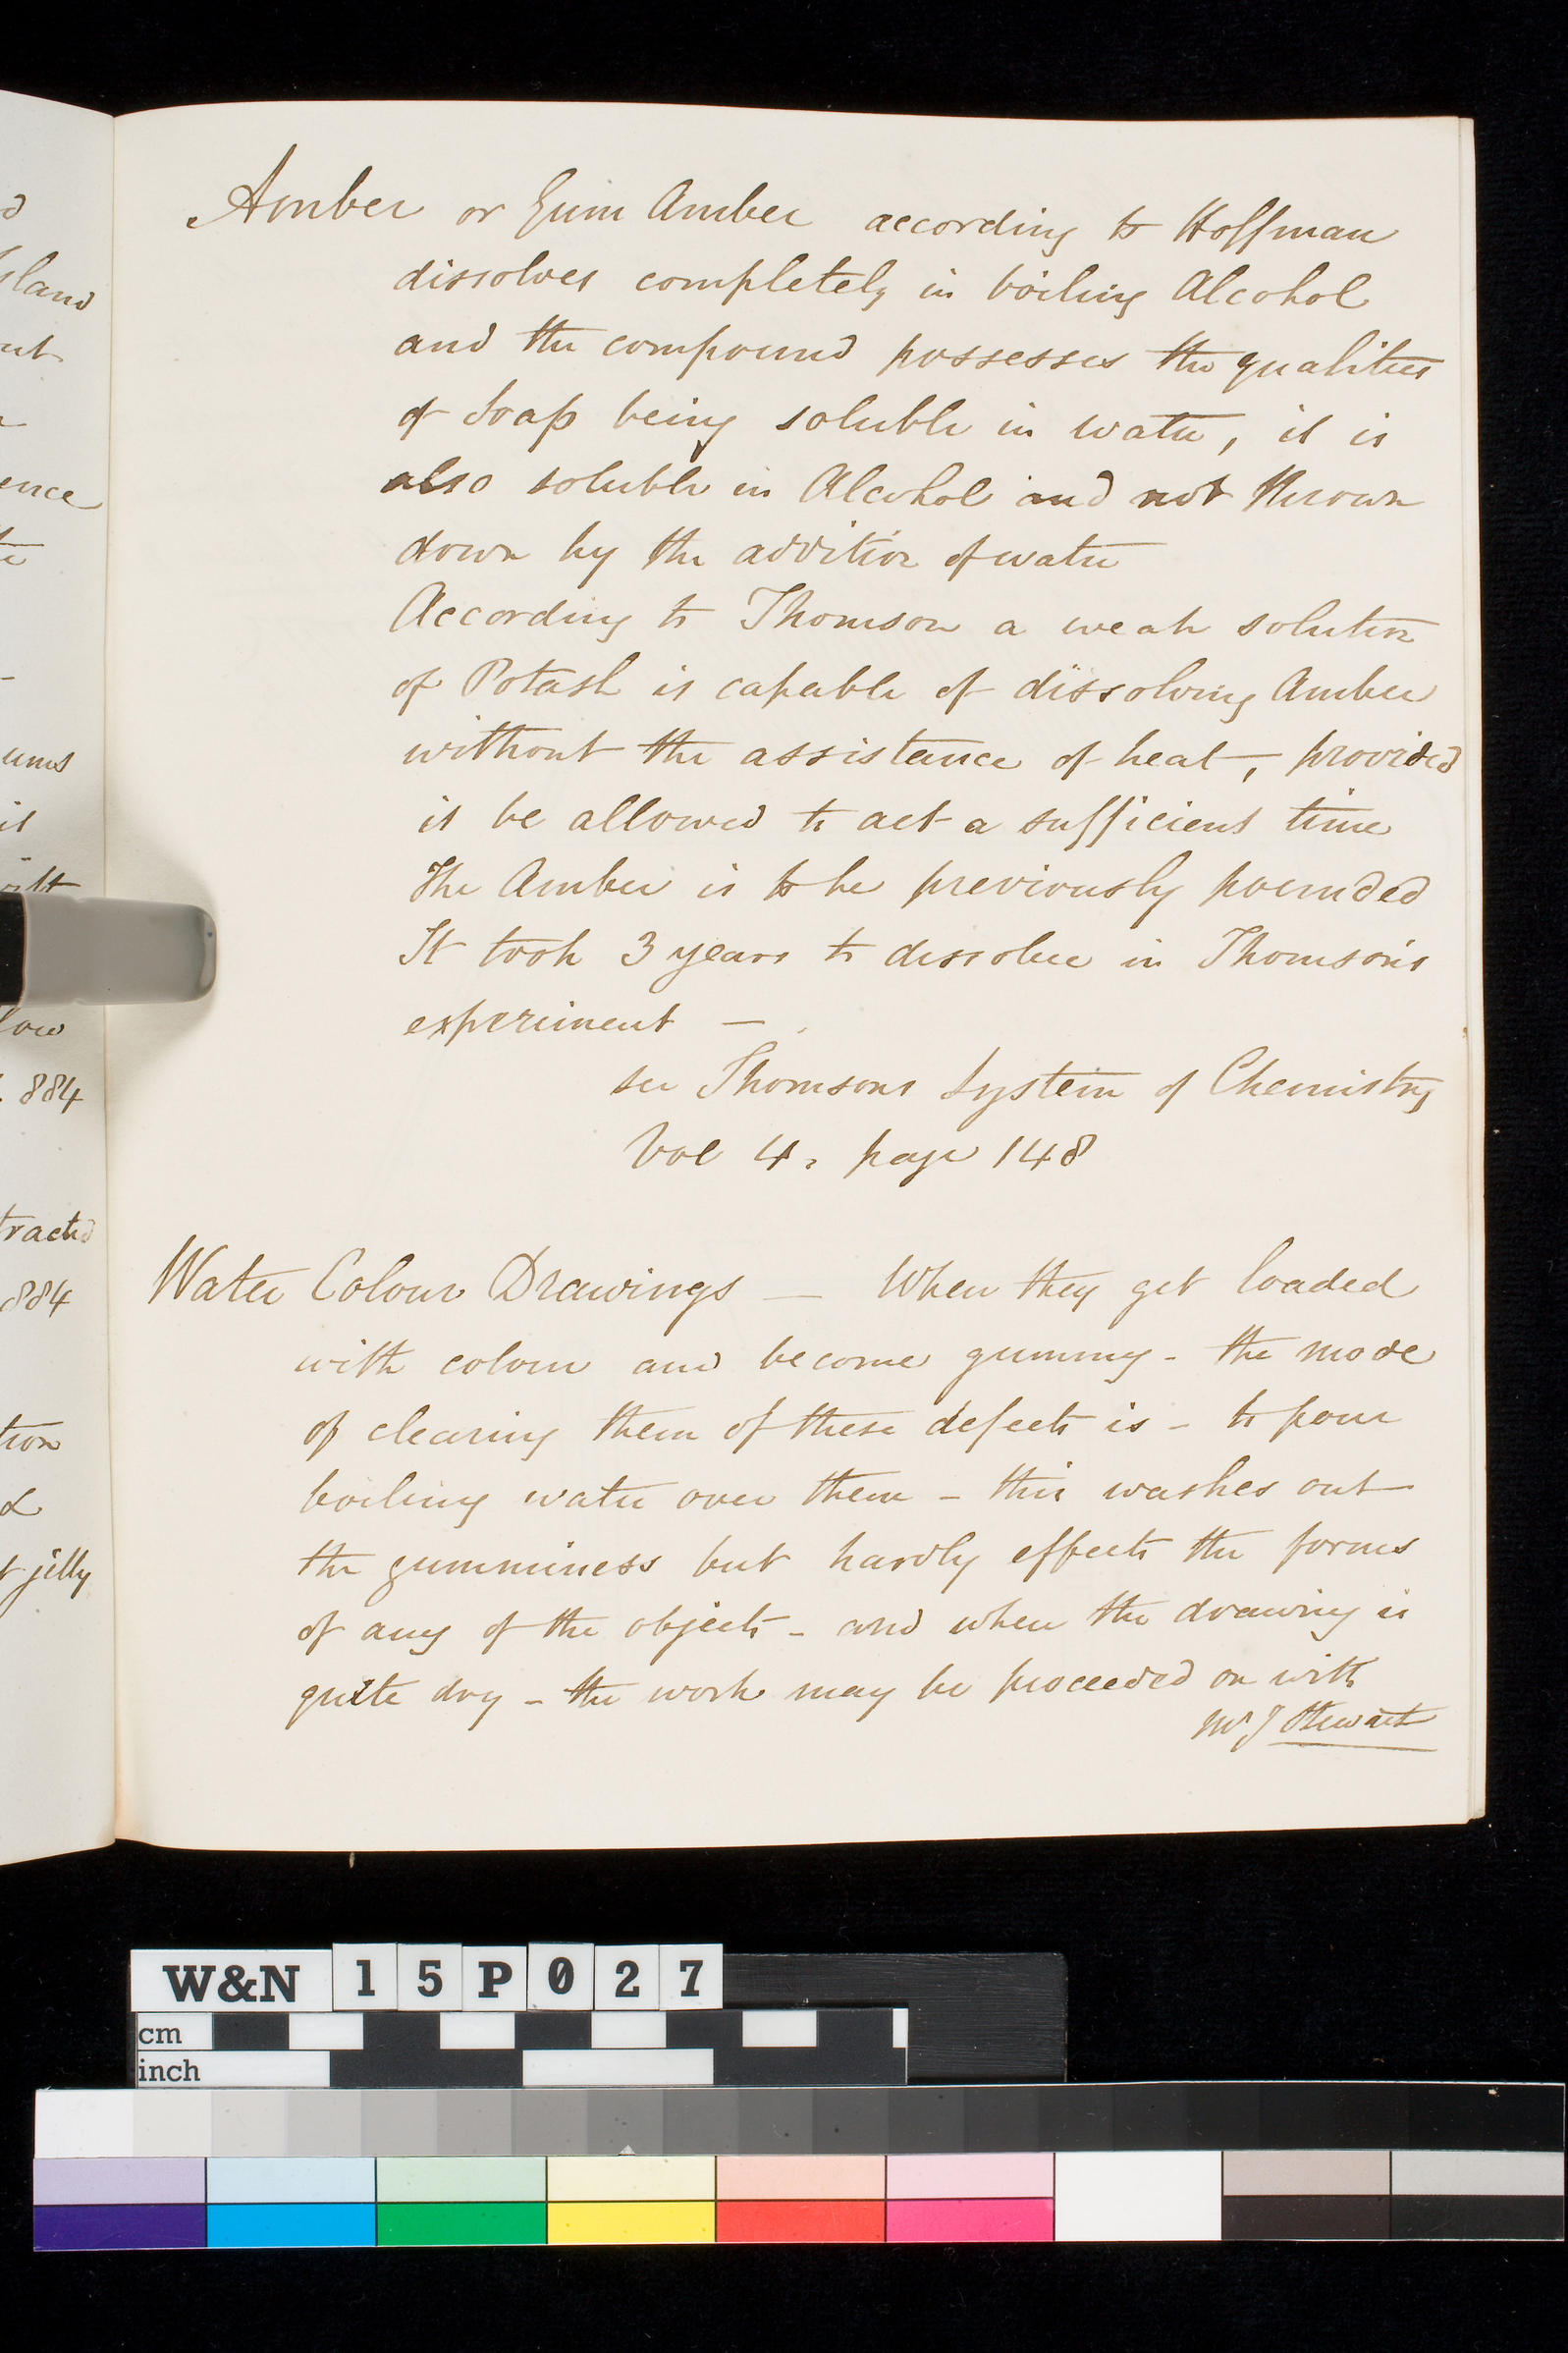 d
sland
out
ence
te
ums
it
with
low
. 884
tracted
884
tion
&
t jelly
Amber or Gum Amber according to Hoffman
dissolves completely in boiling Alcohol
and the compound possesses the qualities
of Soap being soluble in water, it is
also soluble in Alcohol and not thrown
down by the addition of water
According to Thomson a weak solution
of Potash is capable of dissolving Amber
without the assistance of heat, provided
it be allowed to act a sufficient time
The Amber is to be previously pounded
It took 3 years to dissolve in Thomson's
experiment —
see Thomsons System of Chemistry
Vol 4. page 148
Water Colour Drawings — When they get loaded
with colour and become gummy - the mode
of clearing them of these defects is - to pour
boiling water over them - this washes out
the gumminess but hardly effects the forms
of any of the objects - and when the drawing is
quite dry - the work may be proceeded on with
Mr J Stewart
W&N 15P027
cm
inch